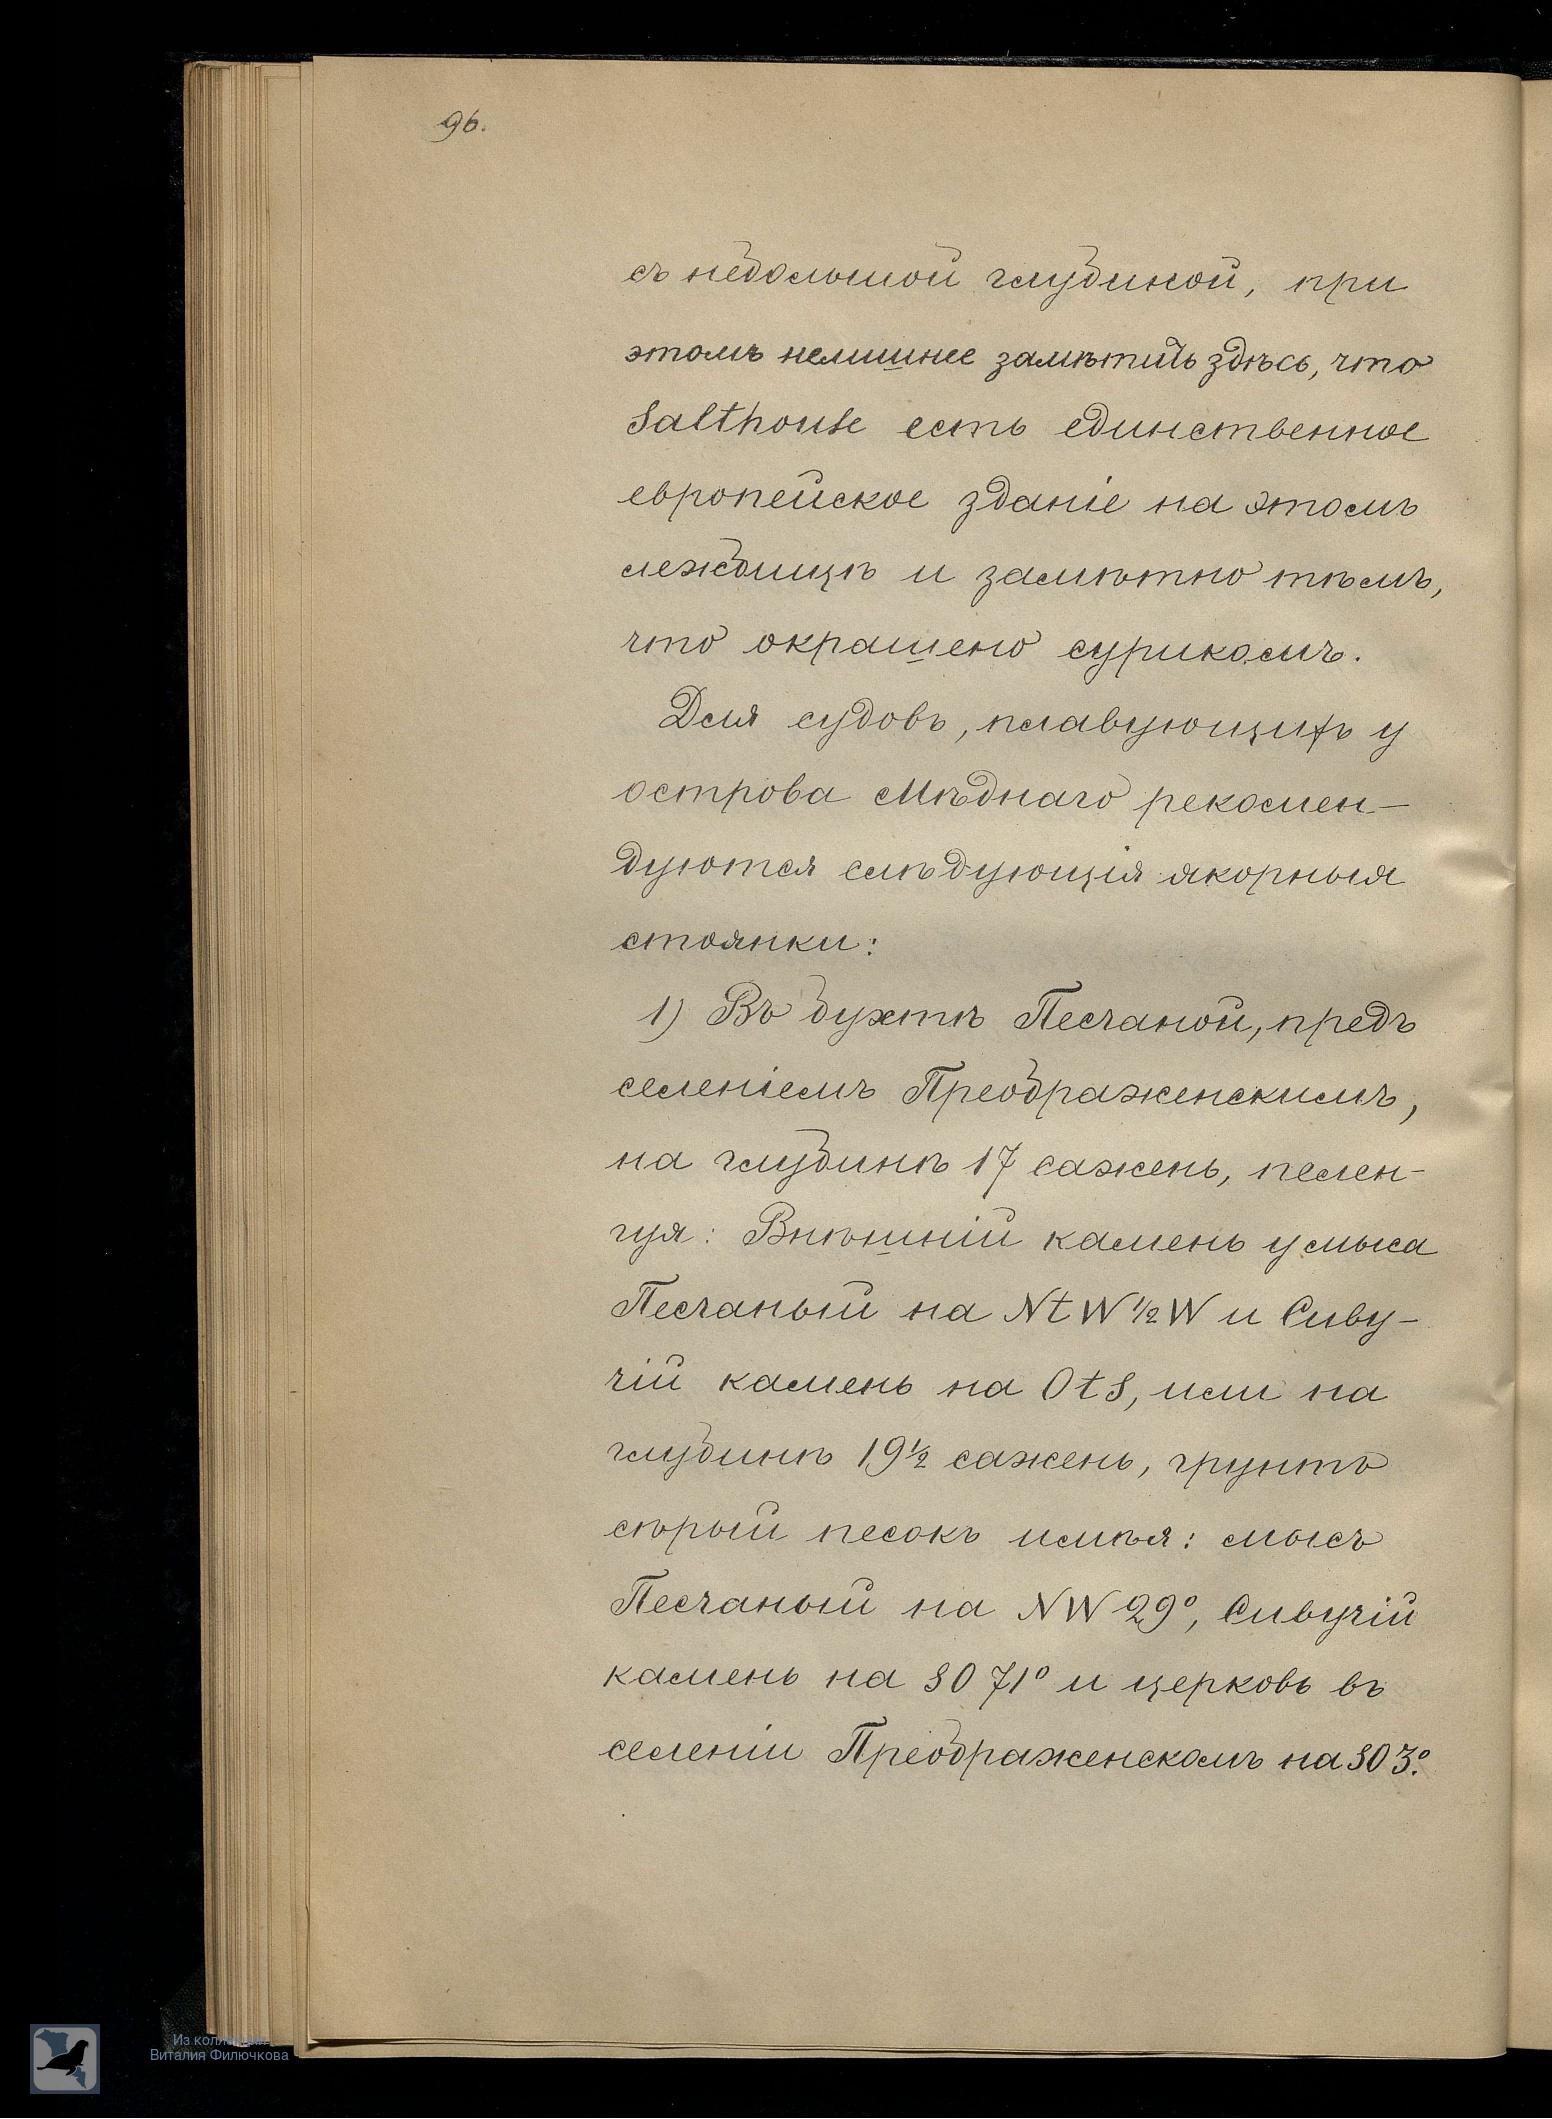 96.
съ небольшой глубиной, при
этомъ нелишнее замѣтить здѣсь, что
Salthouse есть единственное
европейское зданіе на этомъ
лежбищѣ и замѣтно тѣмъ,
что окрашено сурикомъ.
Для судовъ, плавующихъ у
острова Мѣднаго рекомен-
дуются слѣдующія якорныя
стоянки:
1) Въ бухтѣ Песчаной, предъ
селеніемъ Преображенскимъ,
на глубинѣ 17 сажень, пелен-
гуя: Внѣшній камень у мыса
Песчаный на NtW 1/2 W и Сиву-
чій камень на OtS, или на
глубинѣ 19 1/2 сажень, грунтъ
сѣрый песокъ имѣя: мысъ
Песчаный на NW 29°, Сивучій
камень на SO 71° и церковь въ
селеніи Преображенскомъ на SO 3°.
Из коллекции
Виталия Филючкова